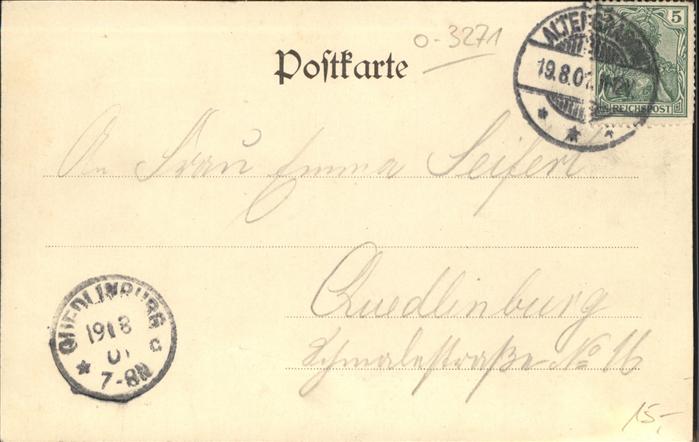 o-3271
Postkarte
5
REICHSPOST
19.8.01.
An Frau Emma Seifert
Quedlinburg
Schmalestraße No 16
QUEDLINBURG
19 8
01
* 7-8N
c
15,-